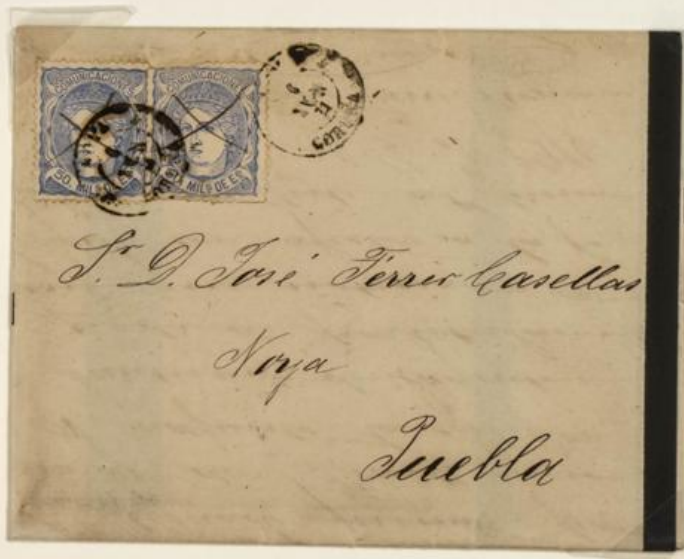 COMUNICACIONES COMUNICACIONES
50. MILS DE ES
CORUÑA
Sr. D. José Ferrer Casellas
Noya
Puebla